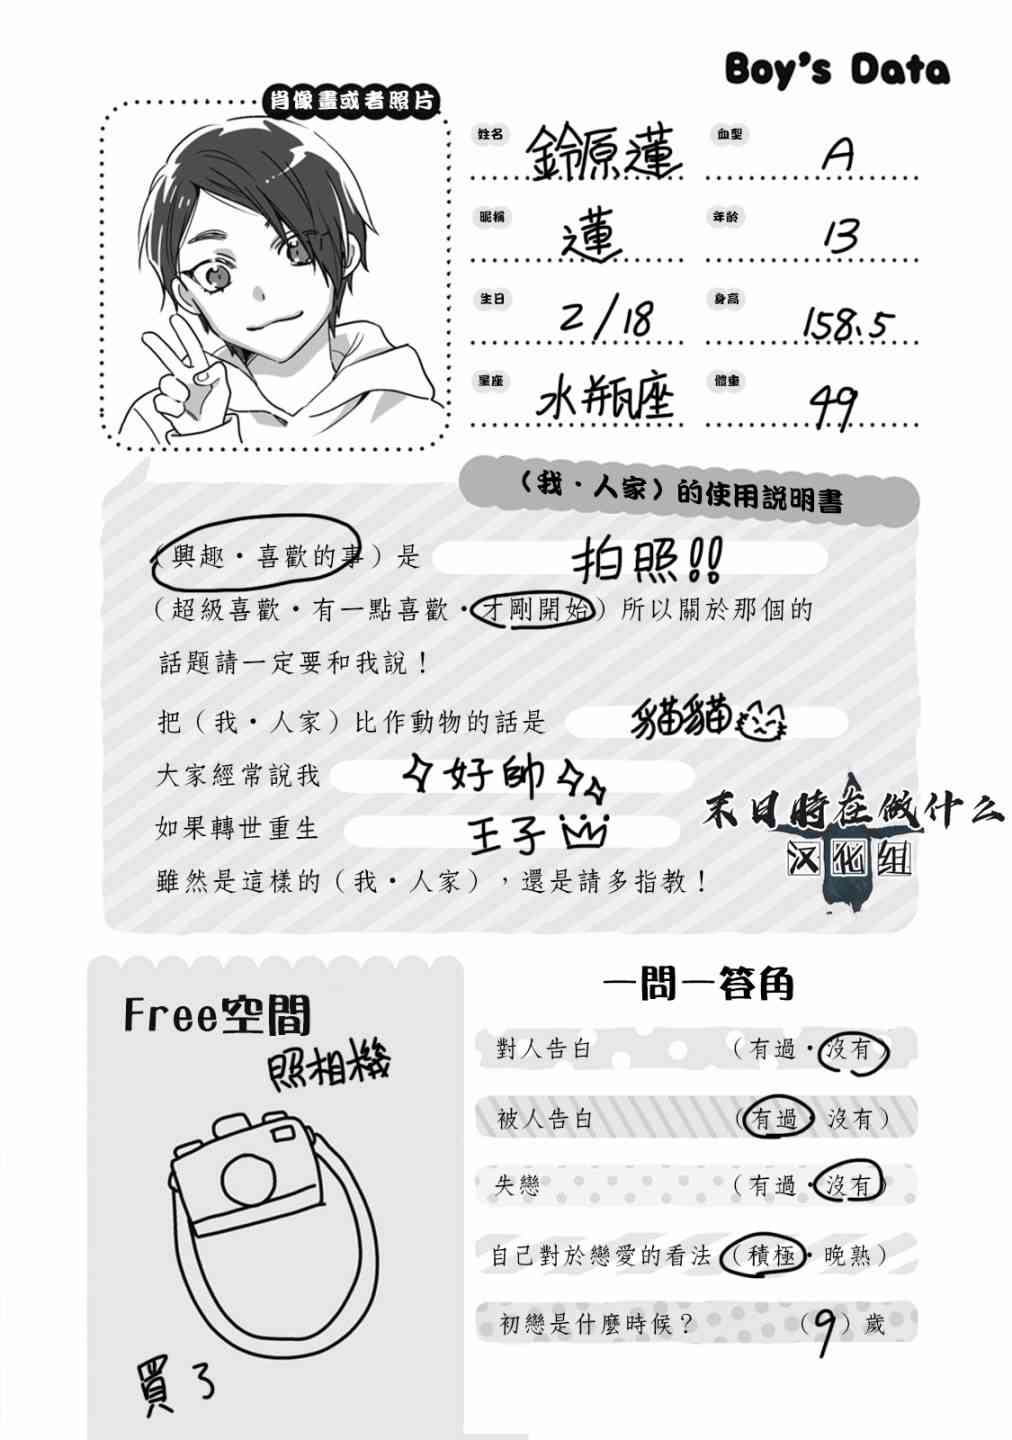 Boy's Data
肖像畫或者照片
姓名 鈴原蓮
血型 A
昵稱 蓮
年齡 13
生日 2/18
身高 158.5
星座 水瓶座
體重 49
（我・人家）的使用説明書
（興趣・喜歡的事）是 拍照!!
（超級喜歡・有一點喜歡・才剛開始）所以關於那個的
話題請一定要和我說！
把（我・人家）比作動物的話是 貓貓
大家經常說我 好帥
如果轉世重生 王子
雖然是這樣的（我・人家），還是請多指教！
末日時在做什么
汉化组
Free空間
照相機
買了
一問一答角
對人告白 （有過・沒有）
被人告白 （有過・沒有）
失戀 （有過・沒有）
自己對於戀愛的看法 （積極・晚熟）
初戀是什麼時候？ （9）歲